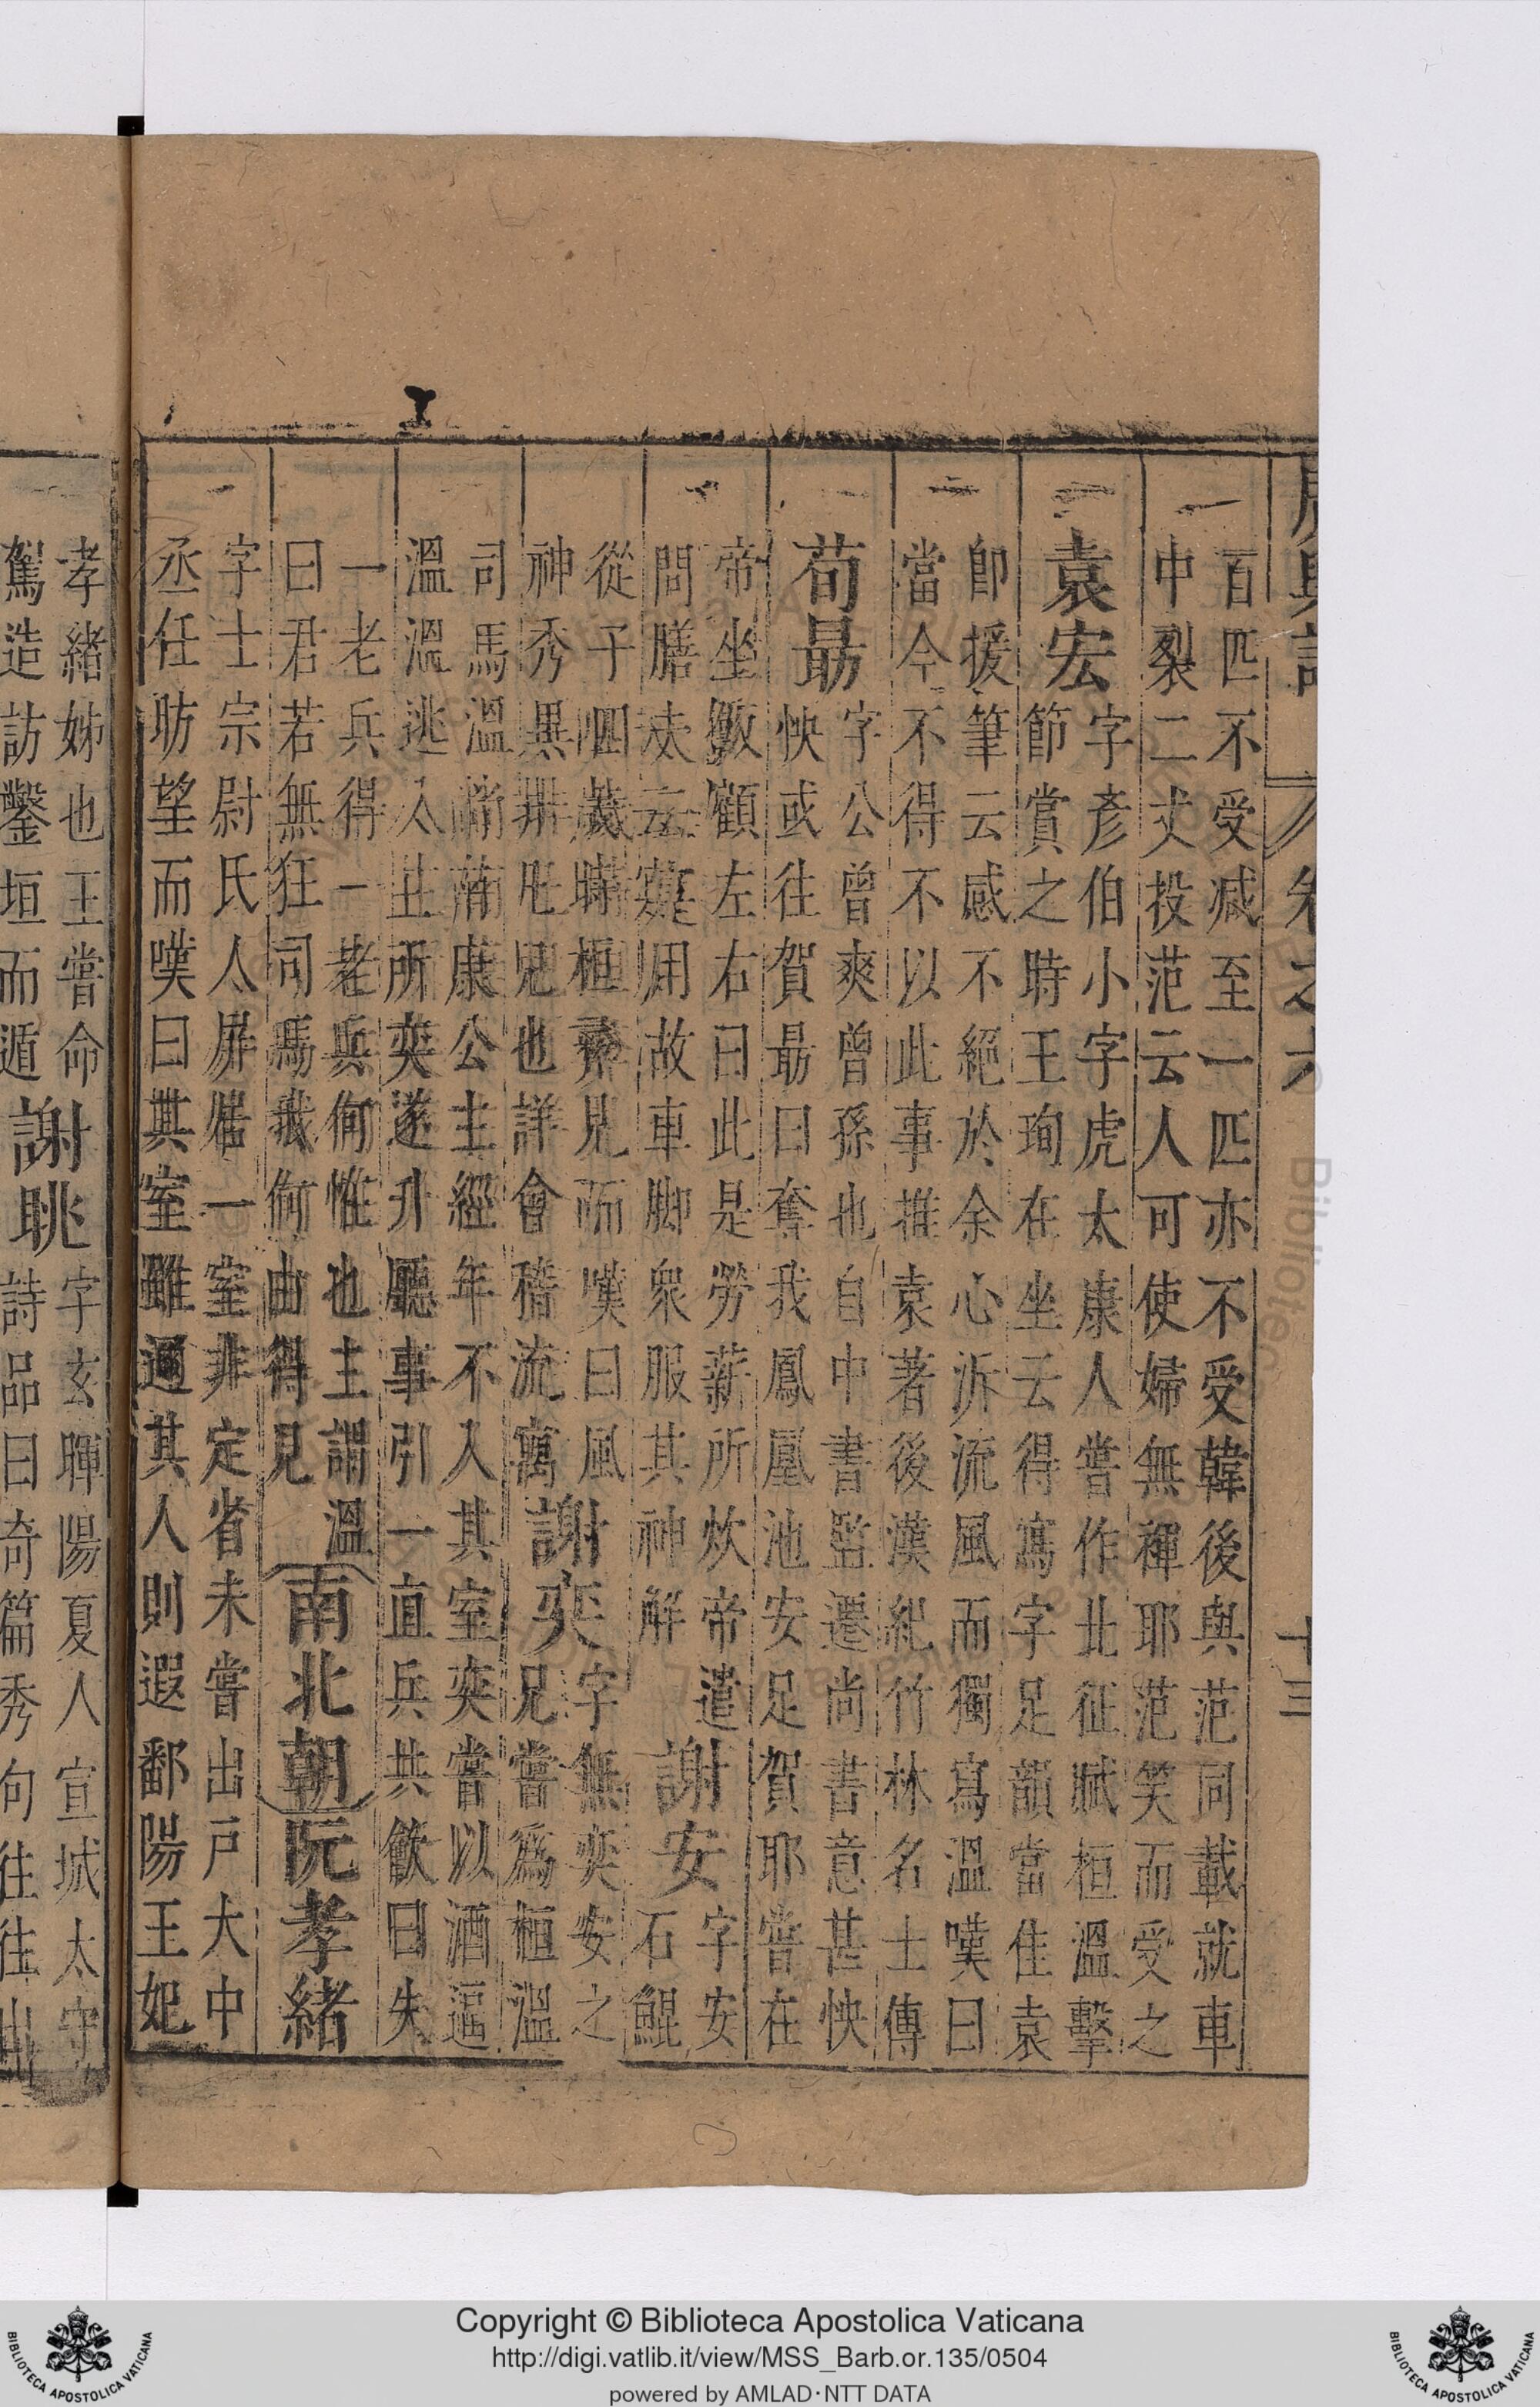 廣輿記 卷之六 十三
百匹不受減至一匹亦不受韓後與范同載就車
中裂二丈投范云人可使婦無褌耶范笑而受之
袁宏
字彥伯小字虎太康人嘗作北征賦桓溫擊
節賞之時王珣在坐云得寫字足韻當佳袁
卽援筆云感不絕於余心泝流風而獨寫溫嘆曰
當今不得不以此事推袁著後漢紀竹林名士傳
荀勗
字公曾爽曾孫也自中書監遷尚書意甚怏
怏或往賀勗曰奪我鳳凰池安足賀耶嘗在
帝坐飯顧左右曰此是勞薪所炊帝遣
問膳夫云寔用故車脚衆服其神解
謝安
字安
石鯤
從子四歲時桓彝見而嘆曰風
神秀異兄也詳會稽流寓
謝奕
字無奕安之
兄嘗爲桓溫
司馬溫尚南康公主經年不入其室奕嘗以酒逼
溫溫逃入主所奕遂升廳事引一直兵共飲曰失
一老兵得一老兵何惟也主謂溫
曰君若無狂司馬我何由得見
南北朝
阮孝緒
字士宗尉氏人屏居一室非定省未嘗出戶大中
丞任昉望而嘆曰其室雖邇其人則遐鄱陽王妃
孝緒姊也王嘗命
駕造訪鑿垣而遁
謝眺
字玄暉陽夏人宣城太守
詩品曰奇篇秀句往往出
Copyright © Biblioteca Apostolica Vaticana
http://digi.vatlib.it/view/MSS_Barb.or.135/0504
powered by AMLAD·NTT DATA
BIBLIOTECA APOSTOLICA VATICANA
BIBLIOTECA APOSTOLICA VATICANA